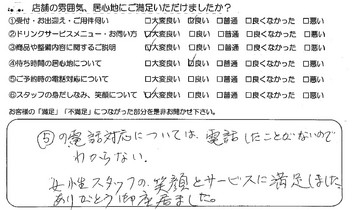 店舗の雰囲気、居心地にご満足いただけましたか？
①受付・お出迎え・ご用件伺い □大変良い □良い □普通 □良くなかった □悪い
②ドリンクサービスメニュー・お伺い方 □大変良い □良い □普通 □良くなかった □悪い
③商品や整備内容に関するご説明 □大変良い □良い □普通 □良くなかった □悪い
④待ち時間の居心地について □大変良い □良い □普通 □良くなかった □悪い
⑤ご予約時の電話対応について □大変良い □良い □普通 □良くなかった □悪い
⑥スタッフの身だしなみ、笑顔について □大変良い □良い □普通 □良くなかった □悪い
お客様の「満足」「不満足」につながった部分を是非お聞かせ下さい。
⑤の電話対応については、電話したことがないので
わからない。
女性スタッフの、笑顔とサービスに満足しました
ありがとう御座居ました。